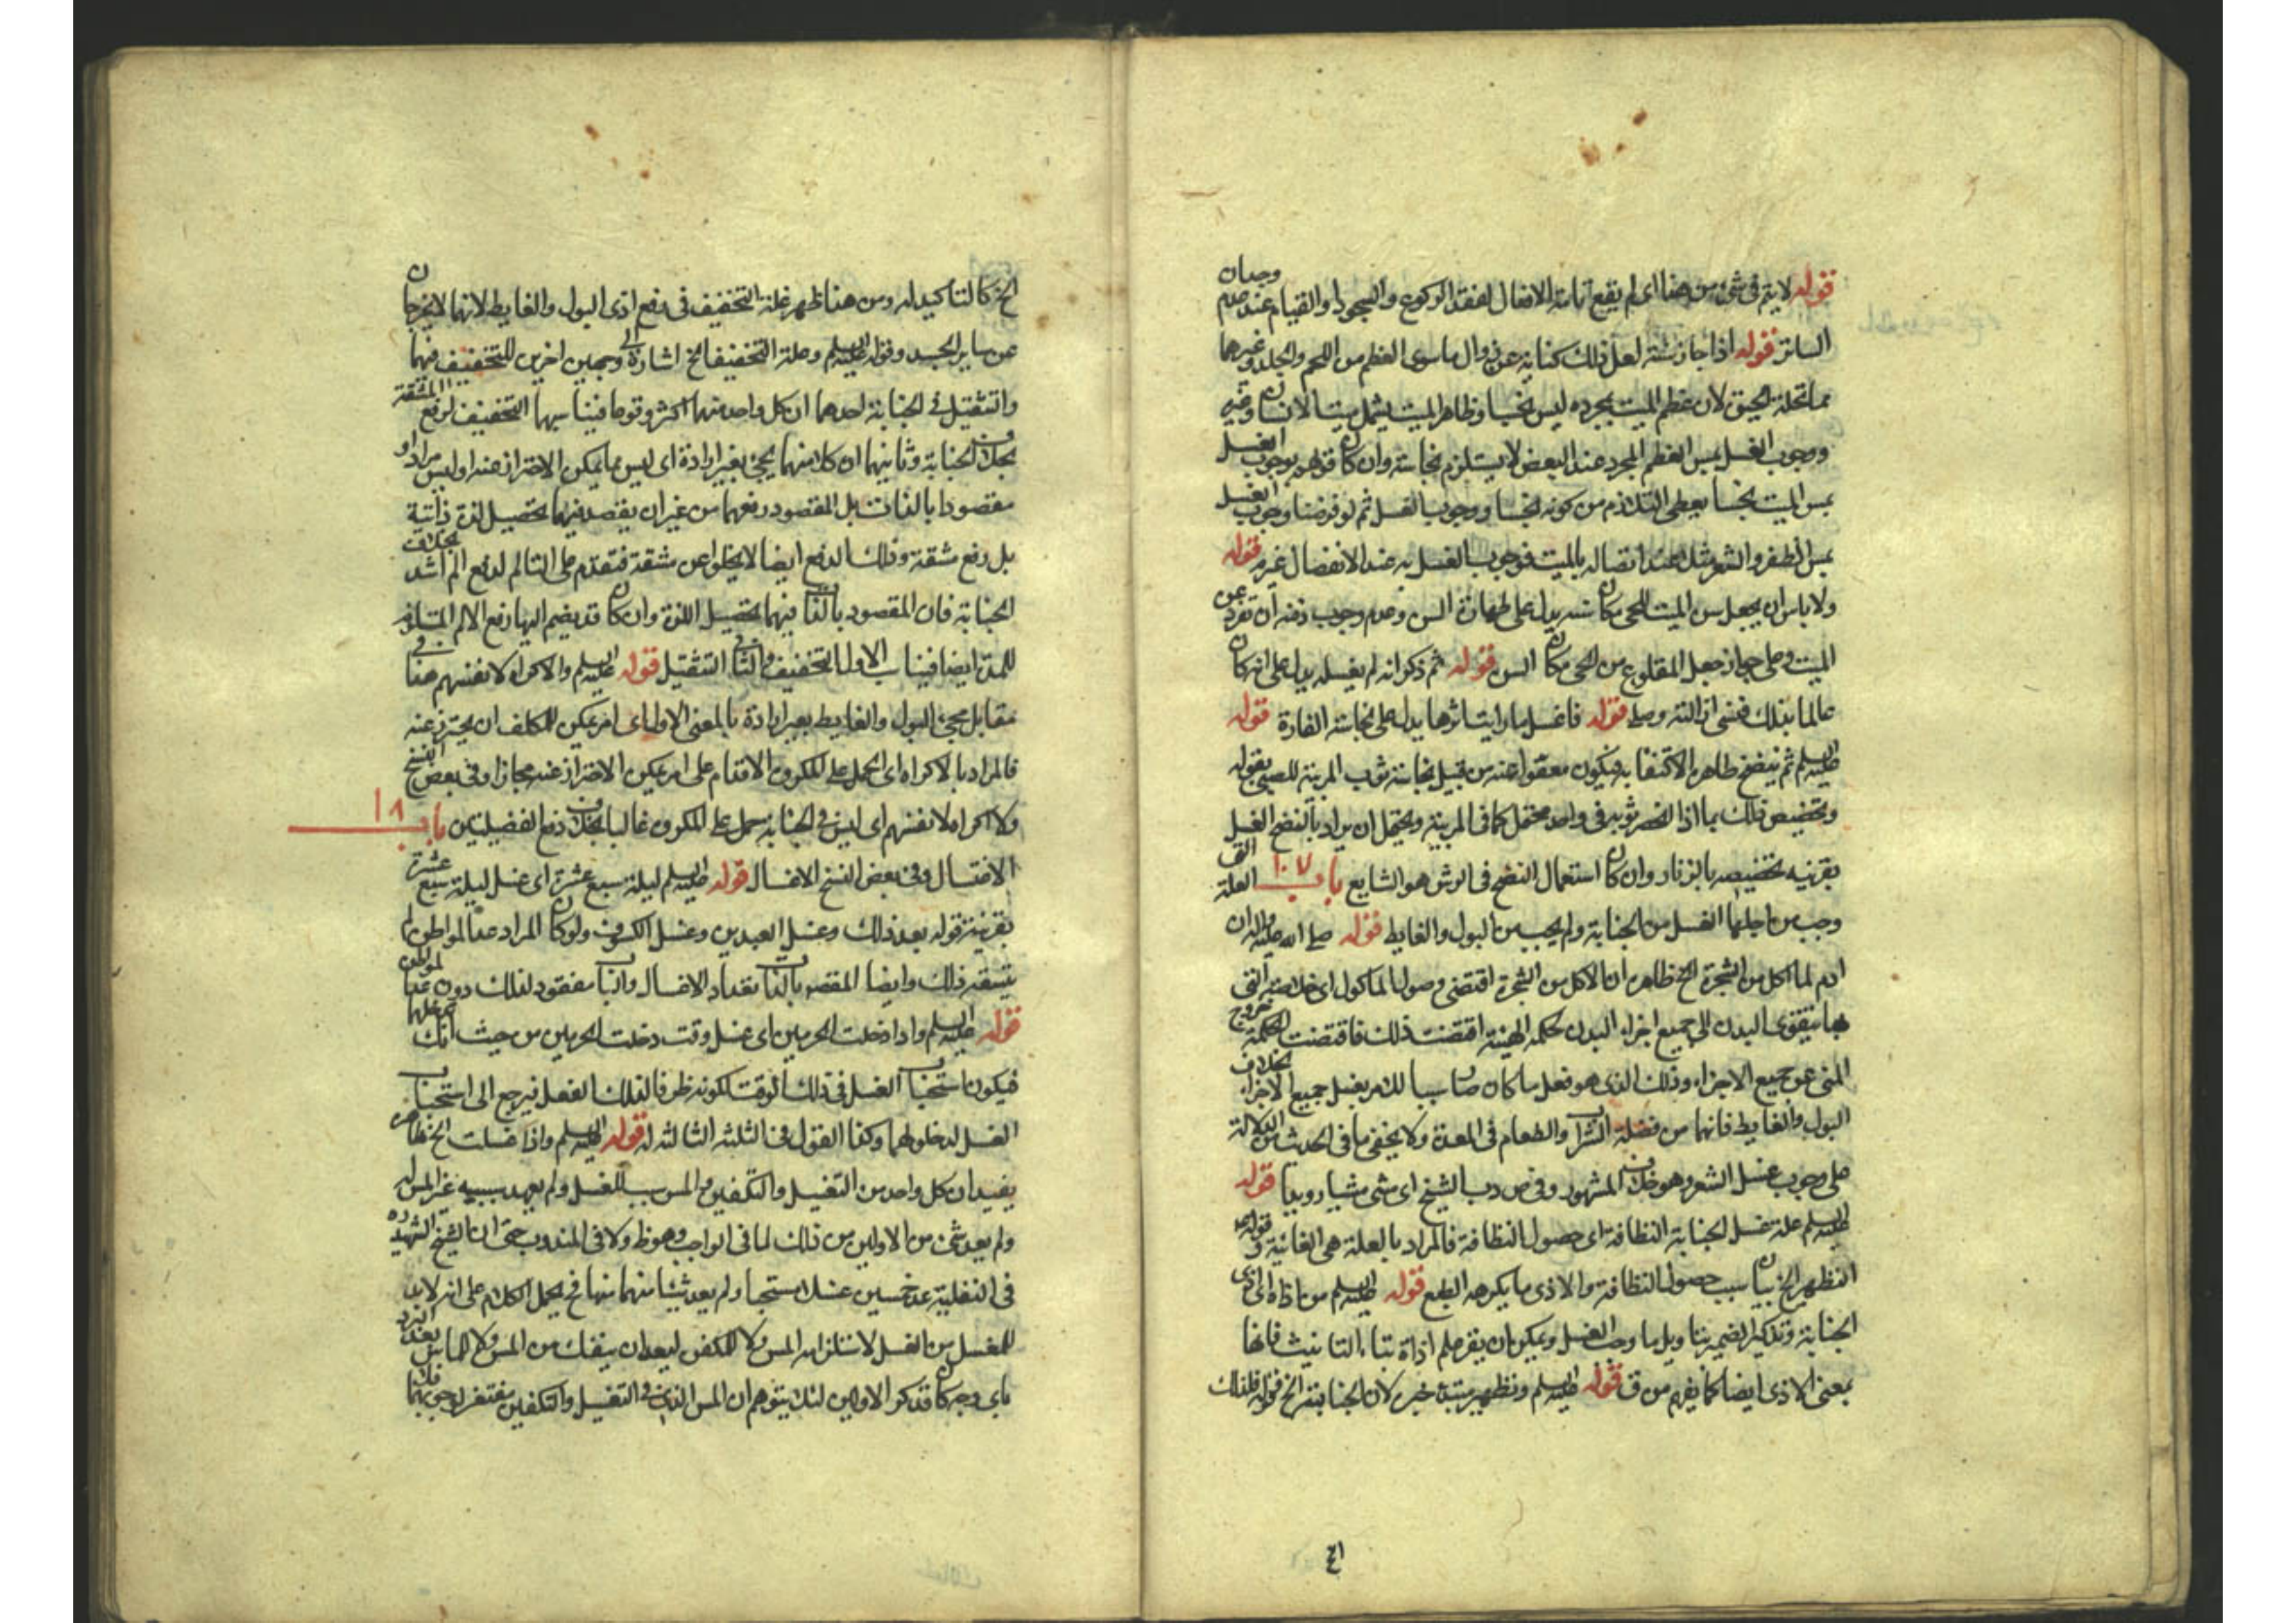 قوله لا يتم في شئ من هذا اى لم يقع تامة الافعال لفقد الركوع والسجود او القيام عند عدم وجدان
الساتر قوله اذا جاز سنة لعل ذلك كناية عن زوال ما سوى العظم من اللحم والجلد وغيرهما
مما تحله الحيوة لان عظم الميت بمجرده ليس نجسا وظاهر الميت يشمل ميت الانسان وغيره
ووجوب الغسل بمس العظم المجرد عند البعض لا يستلزم نجاسته وان كان قولهم بوجوب الغسل
بمس الميت نجسا يعطى التلازم من كونه نجسا ووجوب الغسل ثم لو فرضنا وجوب الغسل
بمس الظفر والشعر مثلا عند اتصاله بالميت فوجوب الغسل به عند الانفصال غير م قوله
ولا باس ان يجعل سن الميت للحى مكان سنه يدل على طهارة السن وعدم وجوب دفنه ان تفرد عن
الميت وعلى جواز جعل المقلوع من الحى مكان السن قوله ثم ذكر انه لم يغسله يدل على انه كان
عالما بذلك فنسى ازالته وصلى قوله فاغسل ما رايت اثرها يدل على نجاسة الفارة قوله
عليه السلم ثم ينضح ظاهره الاكتفا به فيكون معفوا عنه من قبيل نجاسة ثوب المربية للصبى بقوله
وتخصيص ذلك بما اذا انحصر ثوبه في واحد محتمل كما في المربية ويحتمل ان يراد بالنضح الغسل
بقرينة تخصيصه بالزنار وان كان استعمال النضح في الرش هو الشايع باب ١٠٧ العلة التى
وجب من اجلها الغسل من الجنابة ولم يجب من البول والغايط قوله صلى الله عليه واله ان
ادم لما اكل من الشجرة الخ ظاهره ان الاكل من الشجرة اقتضى وصول الماكول اى خلاصته التى
بها يتقوى البدن الى جميع اجزاء البدن لحكمة الهية اقتضت ذلك فاقتضت الحكمة خروج
المنى عن جميع الاجزاء وذلك الذى هو فعل ما كان صار سببا للامر بغسل جميع الاجزاء بخلاف
البول والغايط فانهما من فضلة الشراب والطعام في المعدة ولا يخفى ما في الحديث من الدلالة
على وجوب غسل الشعر وهو خلاف المشهور وفي ص دب الشيخ اى مشى مشيا رويدا قوله
عليه السلم علة غسل الجنابة النظافة اى حصول النظافة فالمراد بالعلة هى الغائية و قوله
التطهير الخ بيان سبب حصول النظافة والاذى ما يكرهه الطبع قوله عليه السلم من اذاه اى اذى
الجنابة وتذكير الضمير بتاويل ما وجب الغسل ويمكن ان يقرء علم اذاة بتاء التانيث فانها
بمعنى الاذى ايضا كما يفهم من ق قوله عليه السلم وتطهير مبتدء خبره لان الجنابة الخ قوله فلذلك
١ع
الخ كالتاكيد له ومن هنا ظهر علة التخفيف في دفع اذى البول والغايط لانهما لا يخرجان
عن ساير الجسد وقوله عليه السلم وعلة التخفيف الخ اشارة الى وجهين اخرين للتخفيف فيهما
والتثقيل في الجنابة احدهما ان كل واحد منهما اكثر وقوعا فيناسبهما التخفيف لدفع المشقة
بخلاف الجنابة وثانيهما ان كلا منهما يجئ بغير ارادة اى ليس مما يمكن الاحتراز عنه او ليس مرادا و
مقصودا بالذات بل المقصود رفعهما من غير ان يقصد فيهما تحصيل لذة ذاتية
بل رفع مشقة وذلك الدفع ايضا لا يخلو عن مشقة فتقدم على التالم لدفع الم اشد بخلاف
الجنابة فان المقصود بالذات فيها تحصيل اللذة وان كان قد يضم اليها رفع الالم المتاذى
للمدة ايضا فيناسب الاول التخفيف وفي الثانى التثقيل قوله عليه السلم والاكراه لانفسهم هنا في
مقابل مجئ البول والغايط بغير ارادة بالمعنى الاول اى امر يمكن للمكلف ان يحترز عنه
فالمراد بالاكراه اى الحمل على المكروه الاقدام على امر يمكن الاحتراز عنه مجازا وفي بعض النسخ
ولا اكراه لانفسهم اى ليس في الجنابة حمل على المكروه غالبا بخلاف دفع الفضيلتين باب ١٨
الاغتسال وفي بعض النسخ الاغسال قوله عليه السلم ليلة سبع عشرة اى غسل ليلة سبع عشرة
بقرينة قوله بعد ذلك وغسل العيدين وغسل الكسوف ولو كان المراد عد المواطن لم
يتسق ذلك وايضا المقصود بالذات تعداد الاغسال والباب معقود لذلك دون عد المواطن
قوله عليه السلم واذا دخلت الحرمين اى غسل وقت دخلت الحرمين من حيث انك تدخلهما
فيكون استحباب الغسل في ذلك الوقت لكونه ظرفا لذلك الفعل فيرجع الى استحباب
الغسل لدخولهما وكذا القول في الثلثة الثالثة له قوله عليه السلم واذا غسلت الخ ظاهره
يفيد ان كل واحد من التغسيل والتكفين والمس سبب للغسل ولم يعهد سببيه غير المس له
ولم يعد شئ من الاولين من ذلك لما في الواجب وهو ظ ولا في المندوب حتى ان الشيخ الشهيد ره
في النفلية عد خمسين غسلا مستحبا ولم يعد شيئا منهما منها فح يحمل الكلام على انه لا بد
للمغسل من الغسل لاستلزامه المس وكذا المكفن لبعد ان ينفك من المس وكذا الماس بعد البرد
باى وجه كان قد ذكر الاولين لئلا يتوهم ان المس الذى في التغسيل والتكفين مغتفر لوجوبهما